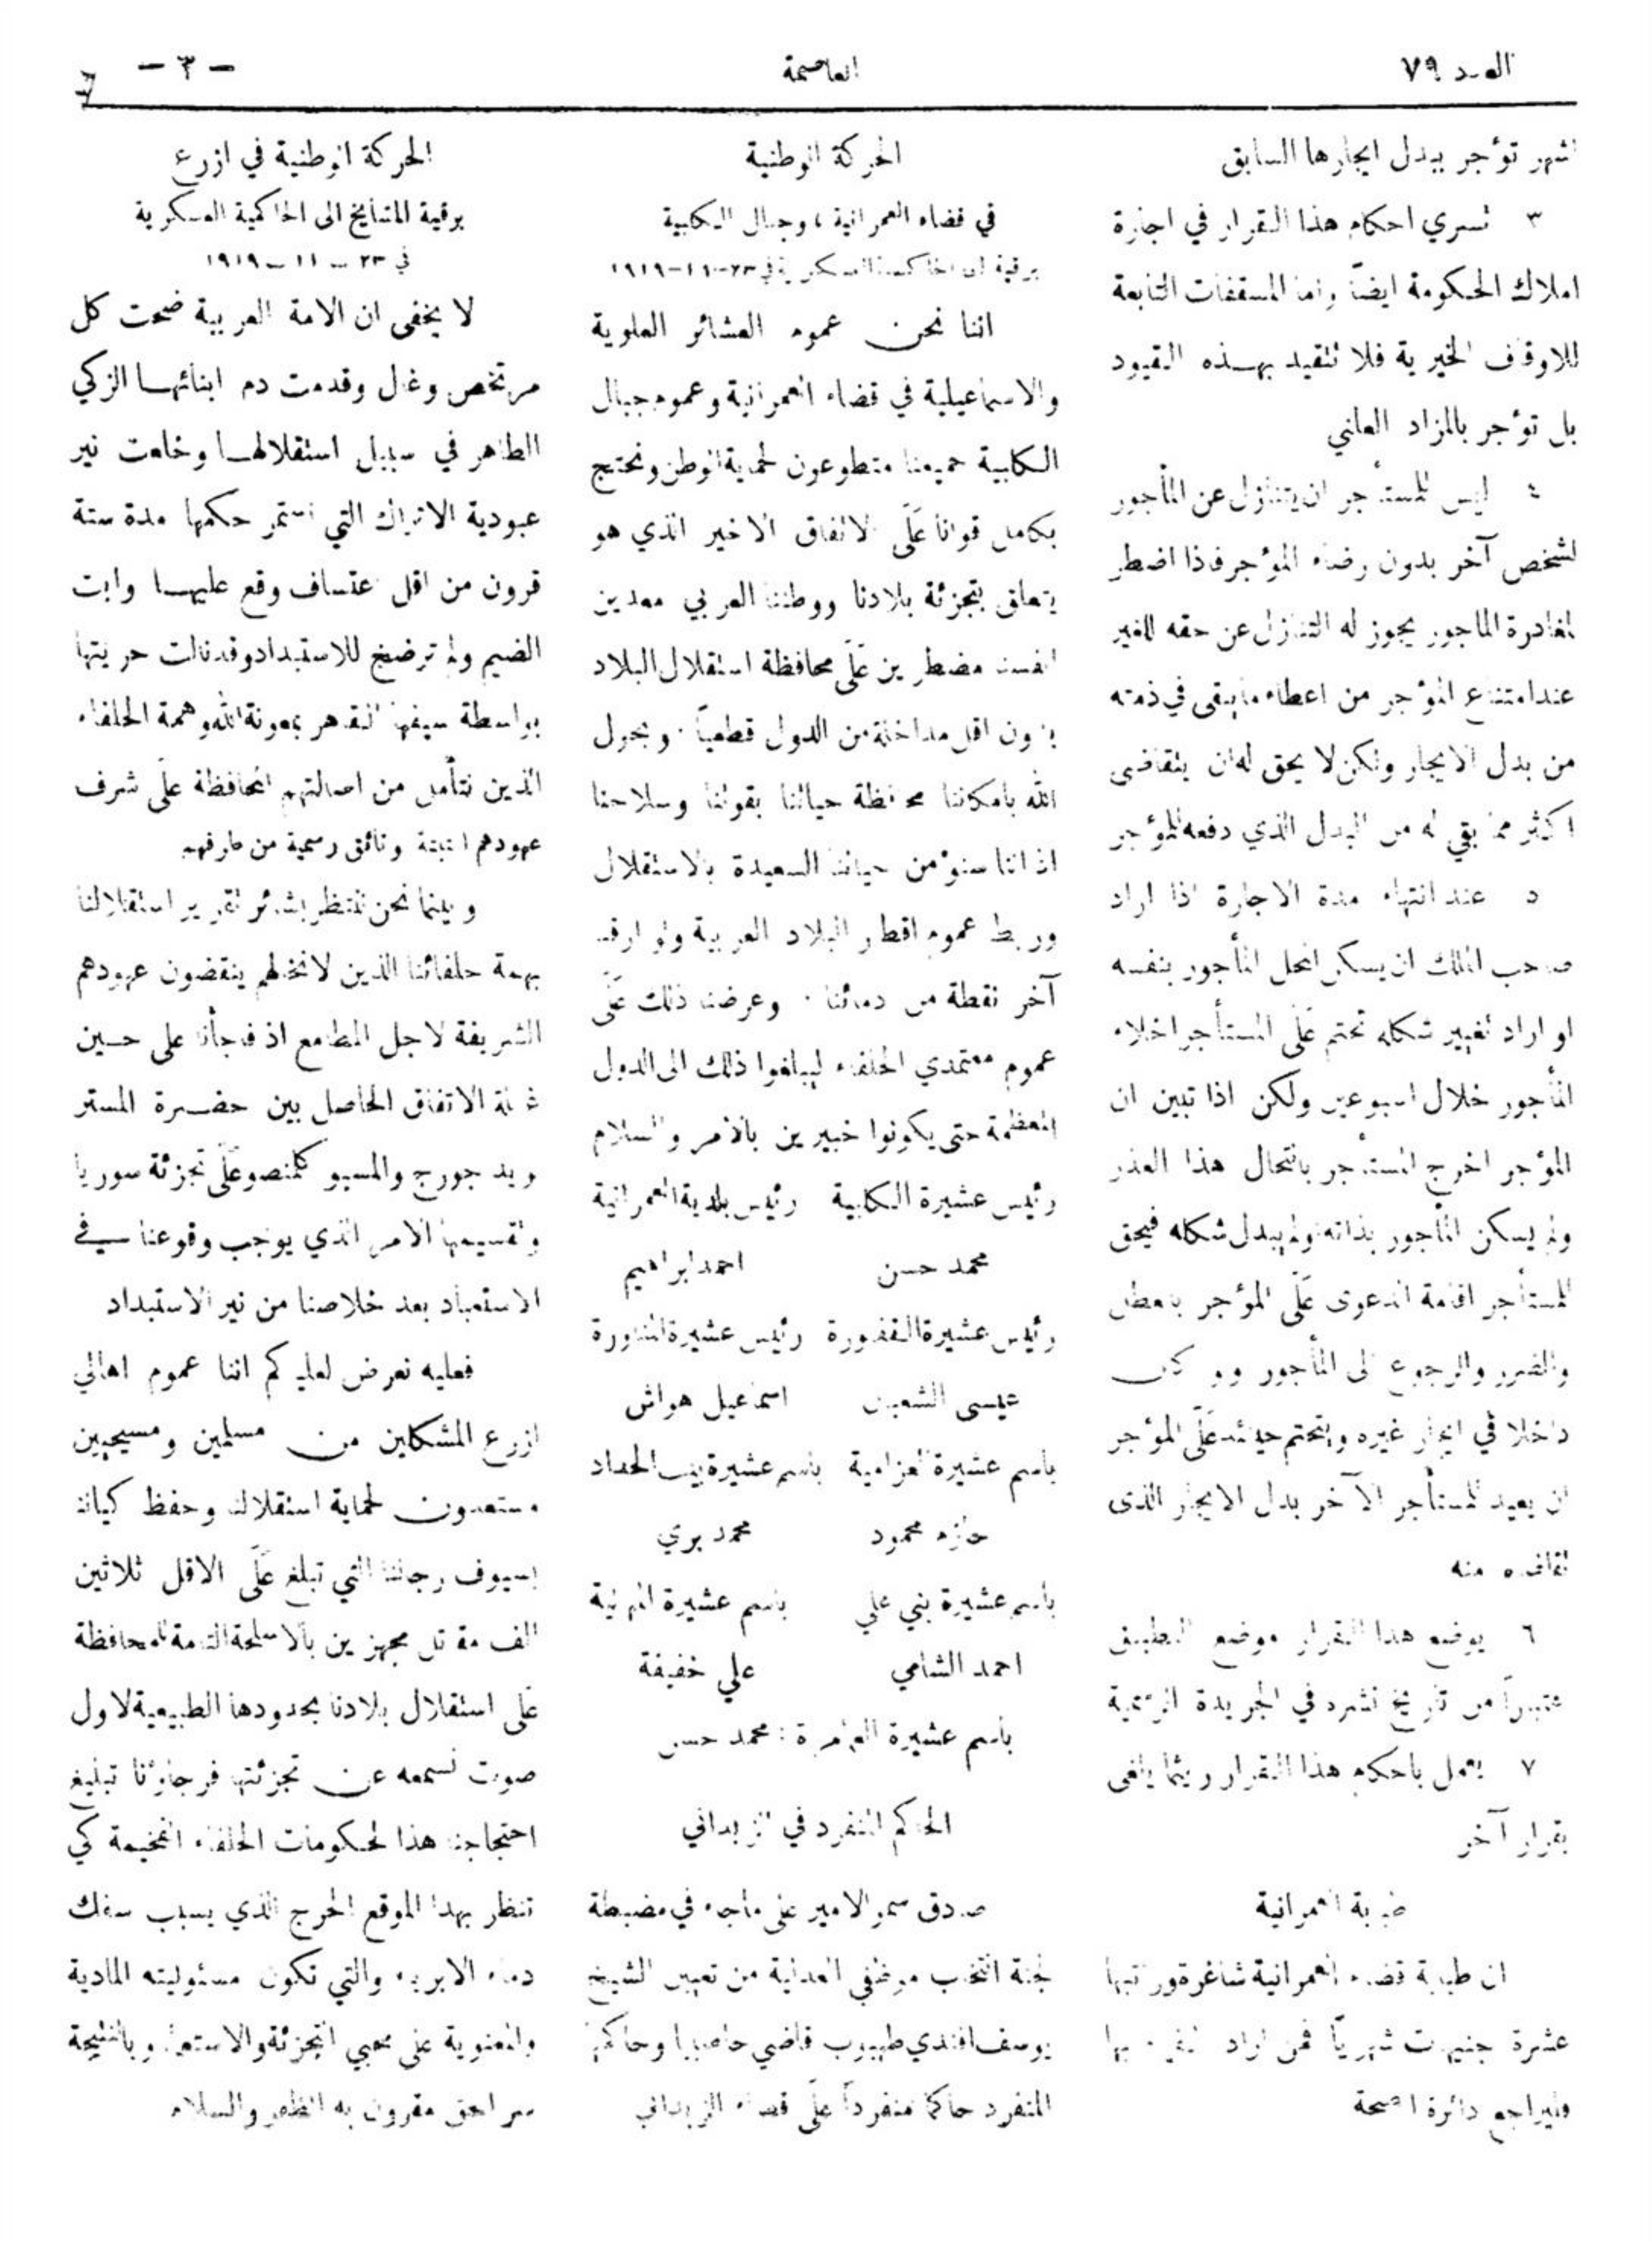 العدد ٧٩
العاصمة
— ٣ —
اشهر تؤجر ببدل ايجارها السابق
٣ تسري احكام هذا القرار في اجارة
املاك الحكومة ايضاً واما المسقفات التابعة
للاوقاف الخيرية فلا تتقيد بهذه القيود
بل تؤجر بالمزاد العلني
٤ ليس للمستأجر ان يتنازل عن المأجور
لشخص آخر بدون رضاء المؤجر فاذا اضطر
لمغادرة الماجور يجوز له التنازل عن حقه للغير
عند امتناع المؤجر من اعطاء ما يبقى في ذمته
من بدل الايجار ولكن لا يحق له ان يتقاضى
اكثر مما بقي له من البدل الذي دفعه للمؤجر
٥ عند انتهاء مدة الاجارة اذا اراد
صاحب الملك ان يسكن المحل المأجور بنفسه
او اراد تغيير شكله تحتم عَلَى المستأجر اخلاء
المأجور خلال اسبوعين ولكن اذا تبين ان
المؤجر اخرج المستأجر بانتحال هذا العذر
ولم يسكن المأجور بذاته ولم يبدل شكله فيحق
للمستأجر اقامة الدعوى عَلَى المؤجر بالعطل
والضرر والرجوع الى المأجور ولو كان
داخلا في ايجار غيره ويتحتم حينئذ عَلَى المؤجر
ان يعيد للمستأجر الآخر بدل الايجار الذى
تقاضاه منه
٦ يوضع هذا القرار موضع التطبيق
اعتباراً من تاريخ نشره في الجريدة الرسمية
٧ يعمل باحكام هذا القرار ريثما يلغى
بقرار آخر
طبابة العمرانية
ان طبابة قضاء العمرانية شاغرة وراتبها
عشرة جنيهات شهرياً فمن اراد بها
فليراجع دائرة الصحة
الحركة الوطنية
في قضاء العمرانية ، وجبال الكلبية
برقية الى الحاكمية العسكرية في ٢٣–١١–١٩١٩
اننا نحن عموم العشائر العلوية
والاسماعيلية في قضاء العمرانية وعموم جبال
الكلبية جميعنا متطوعون لحماية الوطن ونحتج
بكامل قوانا عَلَى الاتفاق الاخير الذي هو
يتعلق بتجزئة بلادنا ووطننا العربي معدين
انفسنا مضطرين عَلَى محافظة استقلال البلاد
بدون اقل مداخلة من الدول قطعياً . وبحول
الله بامكاننا محافظة حياتنا بقوانا وسلاحنا
اذ اننا سنؤمن حياتنا السعيدة بالاستقلال
وربط عموم اقطار البلاد العربية ولو ارقنا
آخر نقطة من دمائنا . وعرضنا ذلك عَلَى
عموم معتمدي الحلفاء ليبلغوا ذلك الى الدول
المعظمة حتى يكونوا خبيرين بالامر والسلام
رئيس عشيرة الكلبية رئيس بلدية العمرانية
محمد حسن احمد ابراهيم
رئيس عشيرة رئيس عشيرة
عيسى اسماعيل هواش
باسم عشيرة باسم عشيرة بيت الحداد
محمود محمد بري
باسم عشيرة بني علي باسم عشيرة
احمد الشامي علي خفيفة
باسم عشيرة : محمد حسن
الحاكم المنفرد في الزبداني
صادق سمو الامير على ماجاء في مضبطة
لجنة انتخاب موظفي العدلية من تعيين الشيخ
يوسف افندي طهبوب قاضي حاصبيا وحاكمها
المنفرد حاكماً منفرداً عَلَى قضاء الزبداني
الحركة الوطنية في ازرع
برقية المشايخ الى الحاكمية العسكرية
في ٢٣ – ١١ – ١٩١٩
لا يخفى ان الامة العربية ضحت كل
مرتخص وغال وقدمت دم ابنائها الزكي
الطاهر في سبيل استقلالها وخلعت نير
عبودية الاتراك التي استمر حكمها مدة ستة
قرون من اقل اعتساف وقع عليها وابت
الضيم ولم ترضخ للاستبداد وقد نالت حريتها
بواسطة سيفها القاهر بمعونة الله وهمة الحلفاء
الذين نتأمل من اصالتهم المحافظة عَلَى شرف
عهودهم وثائق رسمية من طرفهم
وبينما نحن ننتظر بشائر تقرير استقلالنا
بهمة حلفائنا الذين لا نخالهم ينقضون عهودهم
الشريفة لاجل المطامع اذ فوجأنا على حين
غفلة الاتفاق الحاصل بين حضرة المستر
لويد جورج والمسيو كلمنصو عَلَى تجزئة سوريا
وتقسيمها الامر الذي يوجب وقوعنا في
الاستعباد بعد خلاصنا من نير الاستبداد
فعليه نعرض لعليكم اننا عموم اهالي
ازرع المشكلين من مسلمين ومسيحيين
مستعدون لحماية استقلالنا وحفظ كياننا
بسيوف رجالنا التي تبلغ عَلَى الاقل ثلاثين
الف مقاتل مجهزين بالاسلحة التامة للمحافظة
عَلَى استقلال بلادنا بحدودها الطبيعية لاول
صوت نسمعه عن تجزئتها فرجاؤنا تبليغ
احتجاجنا هذا لحكومات الحلفاء الفخيمة كي
تنظر بهذا الموقع الحرج الذي يسبب سفك
دماء الابرياء والتي تكون مسئوليته المادية
والمعنوية على محبي التجزئة والاستعمار وبالنتيجة
سر الحق مقرون به الظفر والسلام